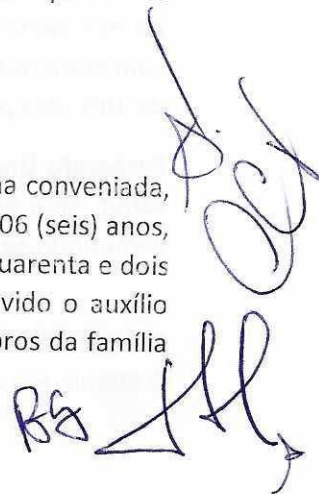 na conveniada,
06 (seis) anos,
uarenta e dois
vido o auxílio
bros da família